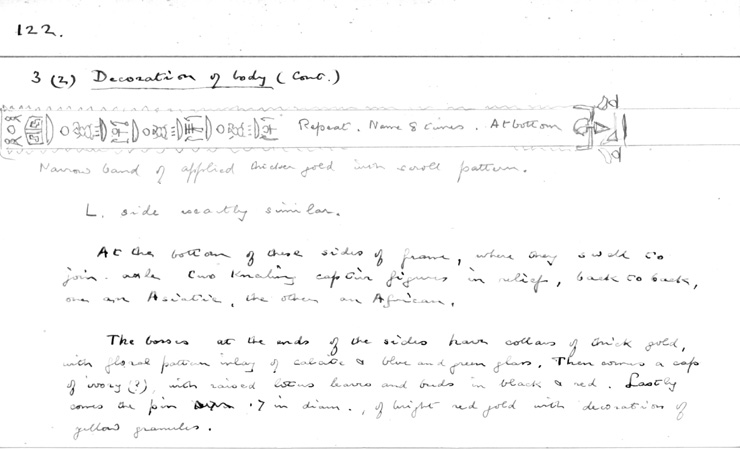 122.
3 (2) Decoration of body (Cont.)
Repeat. Name 8 times. At bottom
Narrow band of applied thicker gold with scroll pattern.
L. side exactly similar.
At the bottom of these sides of frame, where they swell to
join axle two kneeling captive figures in relief, back to back,
one an Asiatic, the other an African.
The bosses at the ends of the sides have collars of thick gold,
with floral pattern inlay of calcite & blue and green glass. Then comes a cap
of ivory (?), with raised lotus leaves and buds in black & red. Lastly
comes the pin .7 in diam., of bright red gold with decoration of
yellow granules.